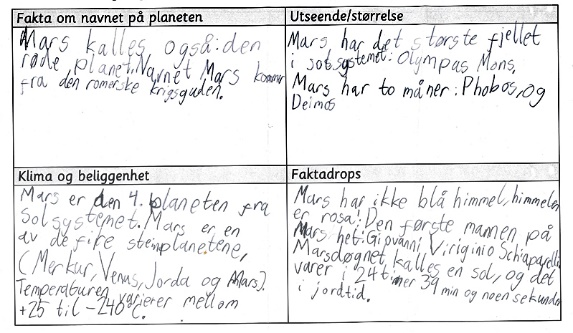 Fakta om navnet på planeten
Mars kalles også: den
røde planet. Navnet Mars kommer
fra den romerske krigsguden.
Utseende/størrelse
Mars har det største fjellet
i solsystemet: Olympas Mons,
Mars har to måner: Phobos, og
Deimos
Klima og beliggenhet
Mars er den 4. planeten fra
Solsystemet. Mars er en
av de fire steinplanetene,
(Merkur, Venus, Jorda og Mars).
Temperaturen varierer mellom
+25 til -240°C.
Faktadrops
Mars har ikke blå himmel, himmelen
er rosa! Den første mannen på
Mars het: Giovanni Viriginio Schiaparelli
Marsdøgnet kalles en sol, og det
varer i 24 timer 39 min og noen sekunder
i jordtid.